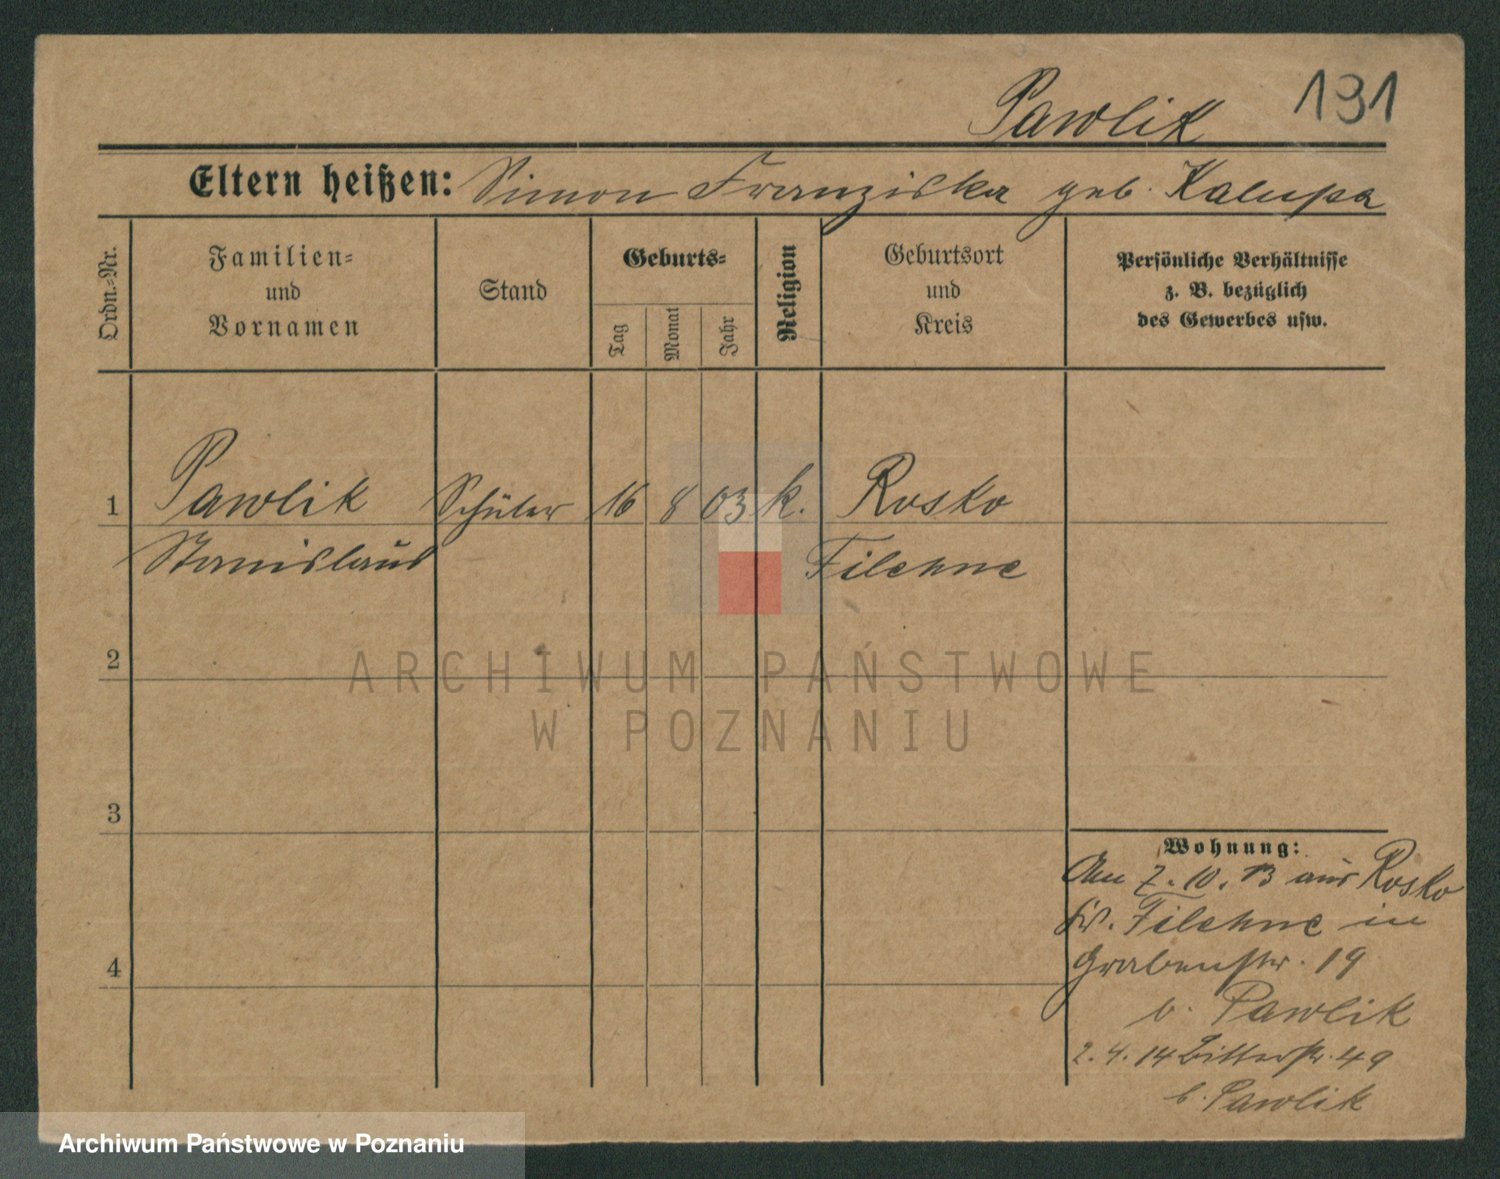 Pawlik 191
Eltern heißen: Simon Franziska geb. Kalupa
Ordn.-Nr.
Familien- und Vornamen
Stand
Geburts-
Tag Monat Jahr
Religion
Geburtsort und Kreis
Persönliche Verhältnisse z. B. bezüglich des Gewerbes usw.
1 Pawlik Schüler 16 8 03 k. Rosko
Stanislaus Filehne
2
ARCHIWUM PAŃSTWOWE
W POZNANIU
3
Wohnung:
Am 7. 10. 13 aus Rosko
Kr. Filehne in
4 Grabenstr. 19
b. Pawlik
2. 4. 14 Bitterstr. 49
b. Pawlik
Archiwum Państwowe w Poznaniu